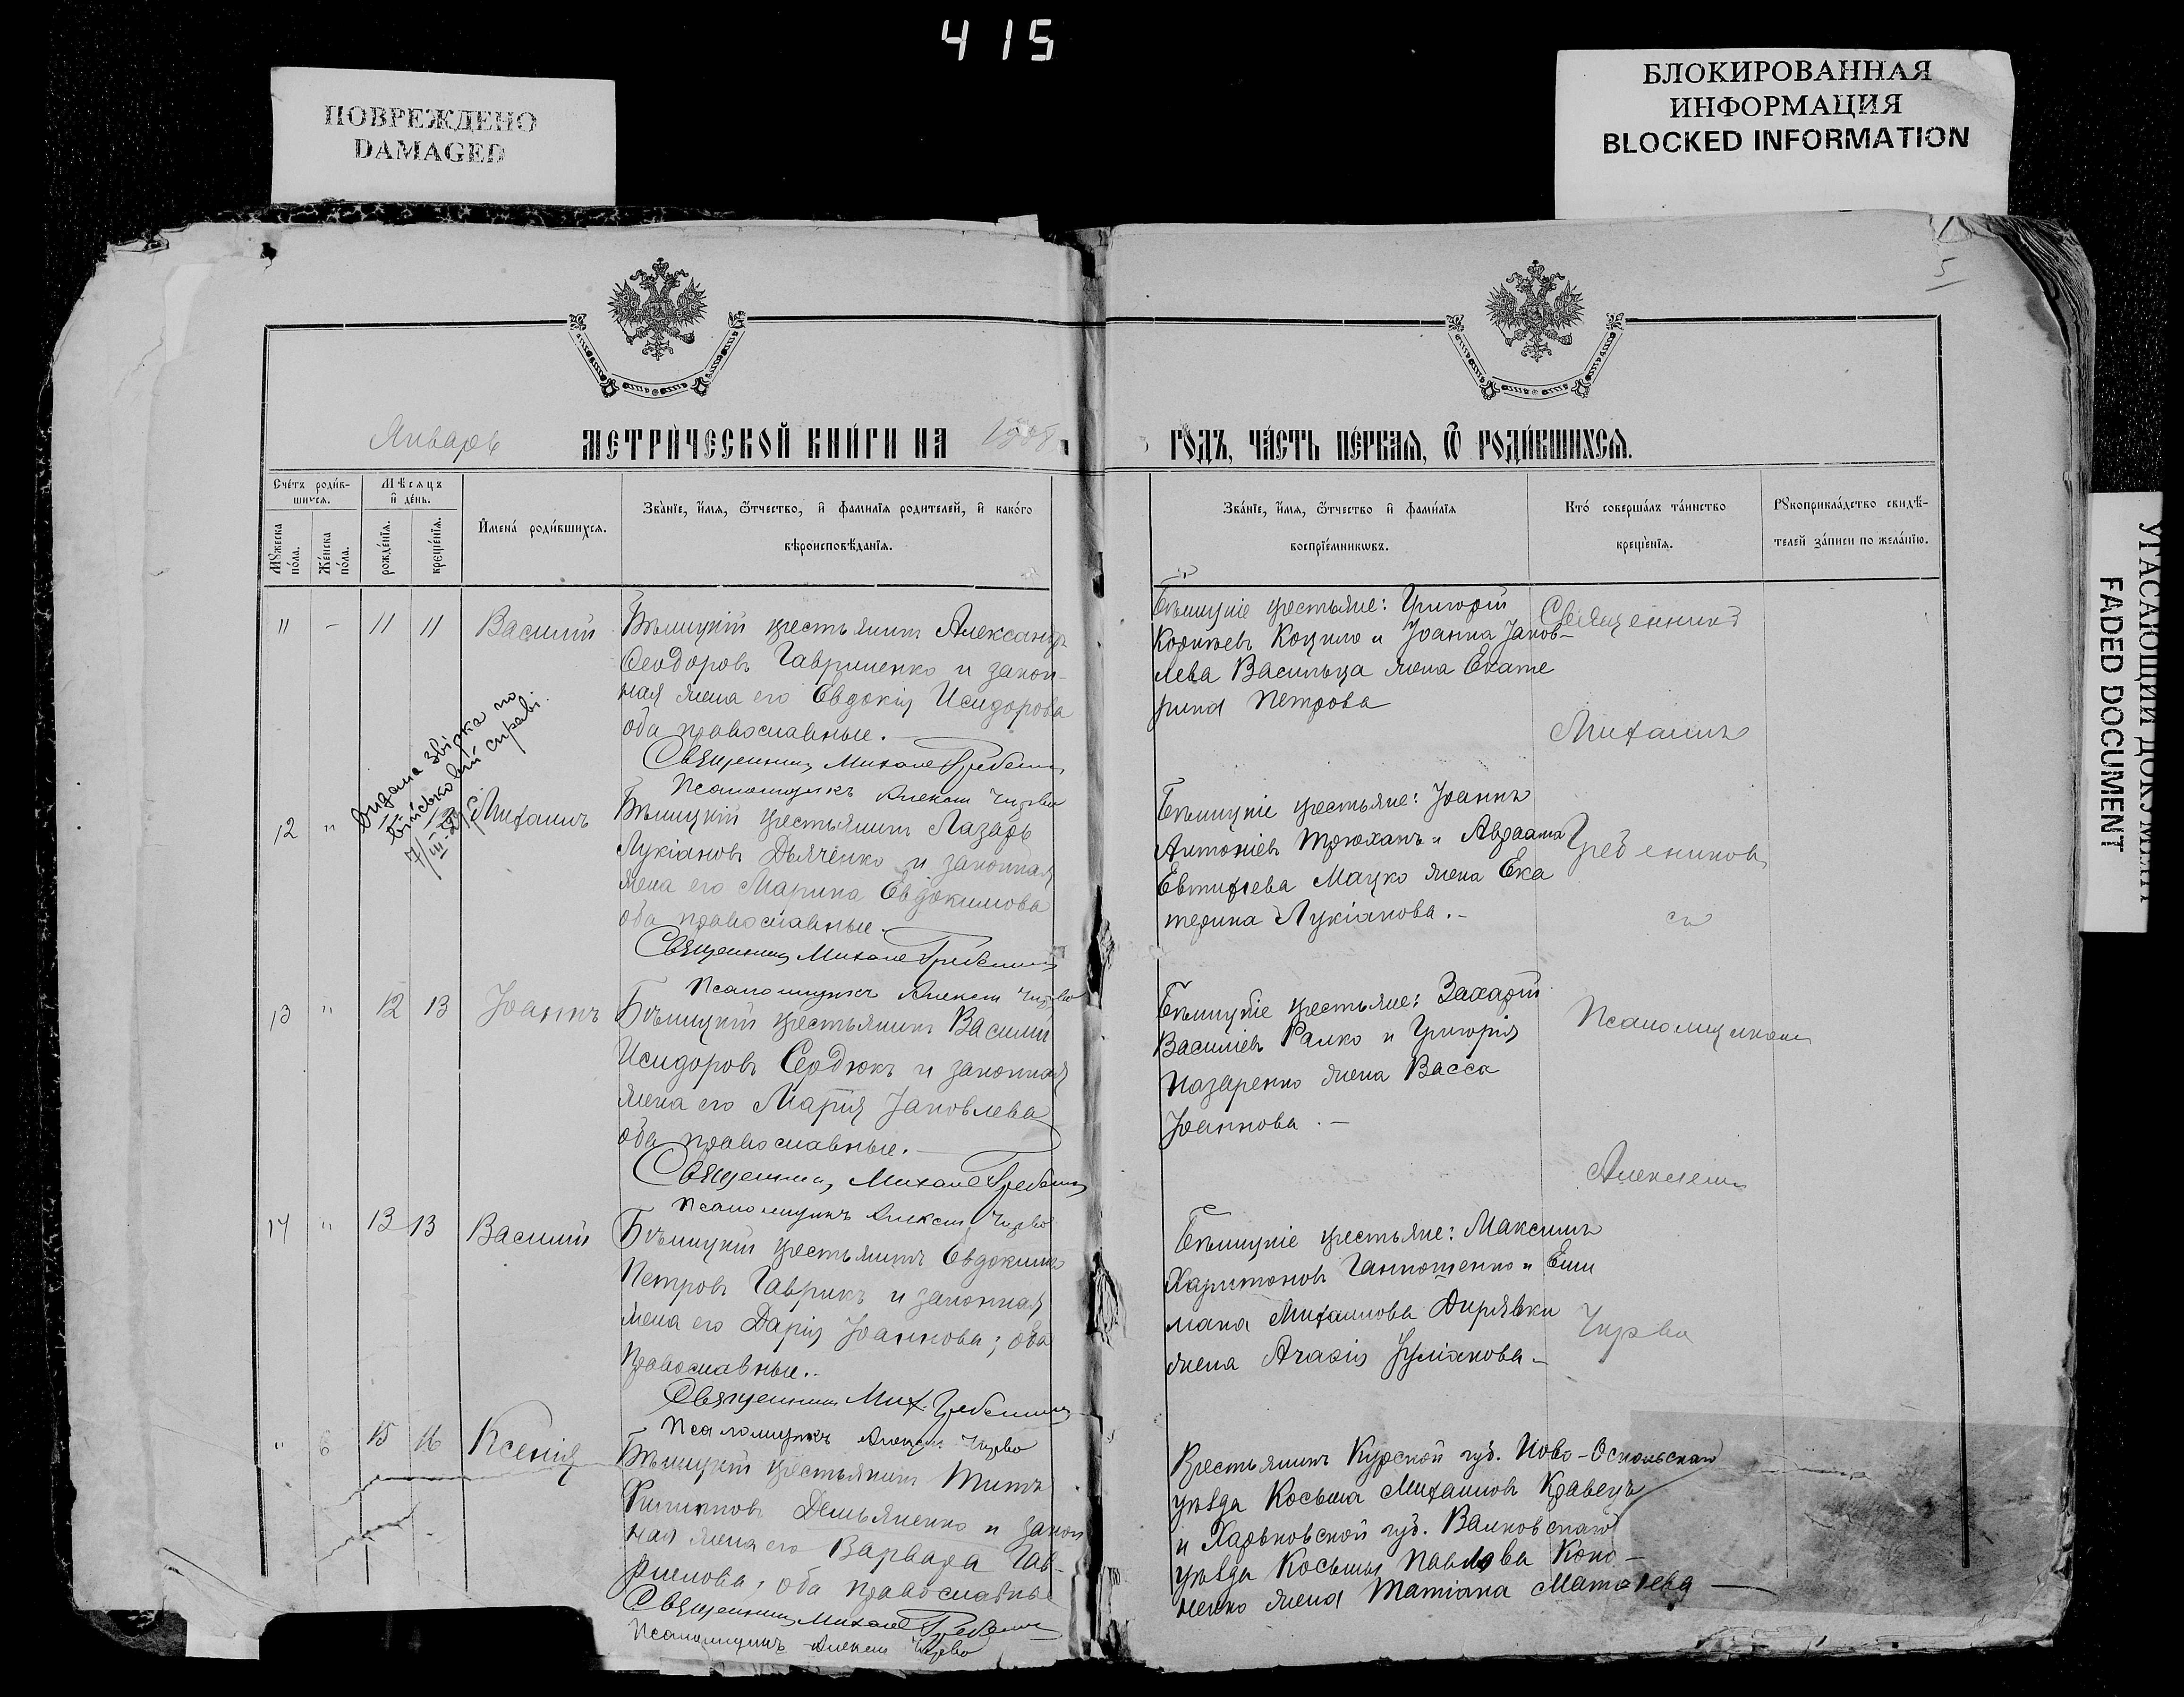 415
ПОВРЕЖДЕНО
DAMAGED
БЛОКИРОВАННАЯ
ИНФОРМАЦИЯ
BLOCKED INFORMATION
УГАСАЮЩИЙ ДОКУМЕНТ
FADED DOCUMENT
5
Январь МЕТРИ́ЧЕСКОЙ КНИ́ГИ НА
ГО́ДЪ, ЧА́СТЬ ПЕ́РВАЯ, Ѿ РОДИ́ВШИХСЯ.
Сче́тъ роди́в-
шихся.
Мꙋ́жеска по́ла.
Же́нска по́ла.
Мѣсяцъ и҆ де́нь.
рожде́нїя.
креще́нїя.
И҆мена́ роди́вшихся.
Зва́нїе, и҆́мя, ѻ҆́тчество, и҆ фами́лїя роди́телей, и҆ како́го
вѣроисповѣ́данїя.
Зва́нїе, и҆́мя, ѻ҆́тчество и҆ фами́лїя
воспрїе́мникѡвъ.
Кто́ соверша́лъ та́инство
креще́нїя.
Рꙋкоприкла́дство свидѣ́-
телей за́писи по жела́нїю.
11 – 11 11 Василій
Бѣлицкій крестьянинъ Александръ
Ѳеодоровъ Гавриленко и закон-
ная жена его Евдокія Исидорова
оба православные.
Священникъ Михаилъ Гребениковъ
Псаломщикъ Алексій Чирва
Бѣлицкіе крестьяне: Григорій
Корніевъ Коцило и Іоанна Іаков-
лева Васильца жена Екате
рина Петрова
Священник
Михаилъ
Видана звірка по
військовій справі.
12 " Михаилъ
Бѣлицкій крестьянинъ Лазарь
Лукіановъ Дьяченко и законная
жена его Марина Евдокимова
оба православные.
Священникъ Михаилъ Гребениковъ
Псаломщикъ Алексій Чирва
Бѣлицкіе крестьяне: Іоаннъ
Антоніевъ Трюханъ и
Евтифіева Мацко жена Ека
терина Лукіанова. –
Гребениковъ
съ
13 " 12 13 Іоаннъ
Бѣлицкій крестьянинъ Василій
Исидоровъ Сердюкъ и законная
жена его Марія Іаковлева
оба православные.
Священникъ Михаилъ Гребениковъ
Псаломщикъ Алексій Чирва
Бѣлицкіе крестьяне: Захарій
Василіевъ Ралко и Григорія
Назаренко жена Васса
Іоаннова. –
Псаломщикомъ
Алексіемъ
14 " 13 13 Василій
Бѣлицкій крестьянинъ Евдокимъ
Петровъ Гаврикъ и законная
жена его Дарія Іоаннова; оба
православные.
Священникъ Мих. Гребениковъ
Псаломщикъ Алексій Чирва
Бѣлицкіе крестьяне: Максимъ
Харитоновъ и Еми
лiана Михаилова Дирявки
жена Агафія
Чирва
" 6 15 16 Ксенія
Бѣлицкій крестьянинъ Титъ
Филипповъ Демьяненко и закон
ная жена его Варвара Гав-
риилова, оба православные
Священникъ Михаилъ Гребениковъ
Псаломщикъ Алексій Чирва
Крестьянинъ Курской губ. Ново-Оскольскаго
уѣзда Косьма Михаиловъ Кравецъ
и Харьковской губ. Валковскаго
уѣзда Косьмы Павлова Коно-
ненко жена Татіана Матѳіева –